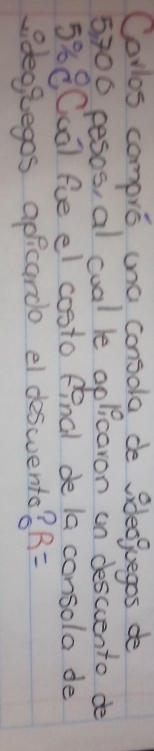 Carlos compró una consola de videojuegos de
5,700 pesos, al cual le aplicaron un descuento de
5% ¿Cuál fue el costo final de la consola de
videojuegos aplicando el descuento? R=